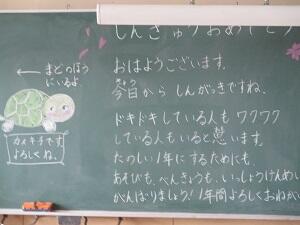 しんきゅうおめでとう
おはようございます。
今日から しんがっきですね。
きょう
ドキドキしている人も ワクワク
している人もいると思います。
たのしい1年にするためにも、
あそびも、べんきょうも、いっしょうけんめい
がんばりましょう！1年間よろしくおねがい
← まどのほう
にいるよ
カメキチです
よろしくね、